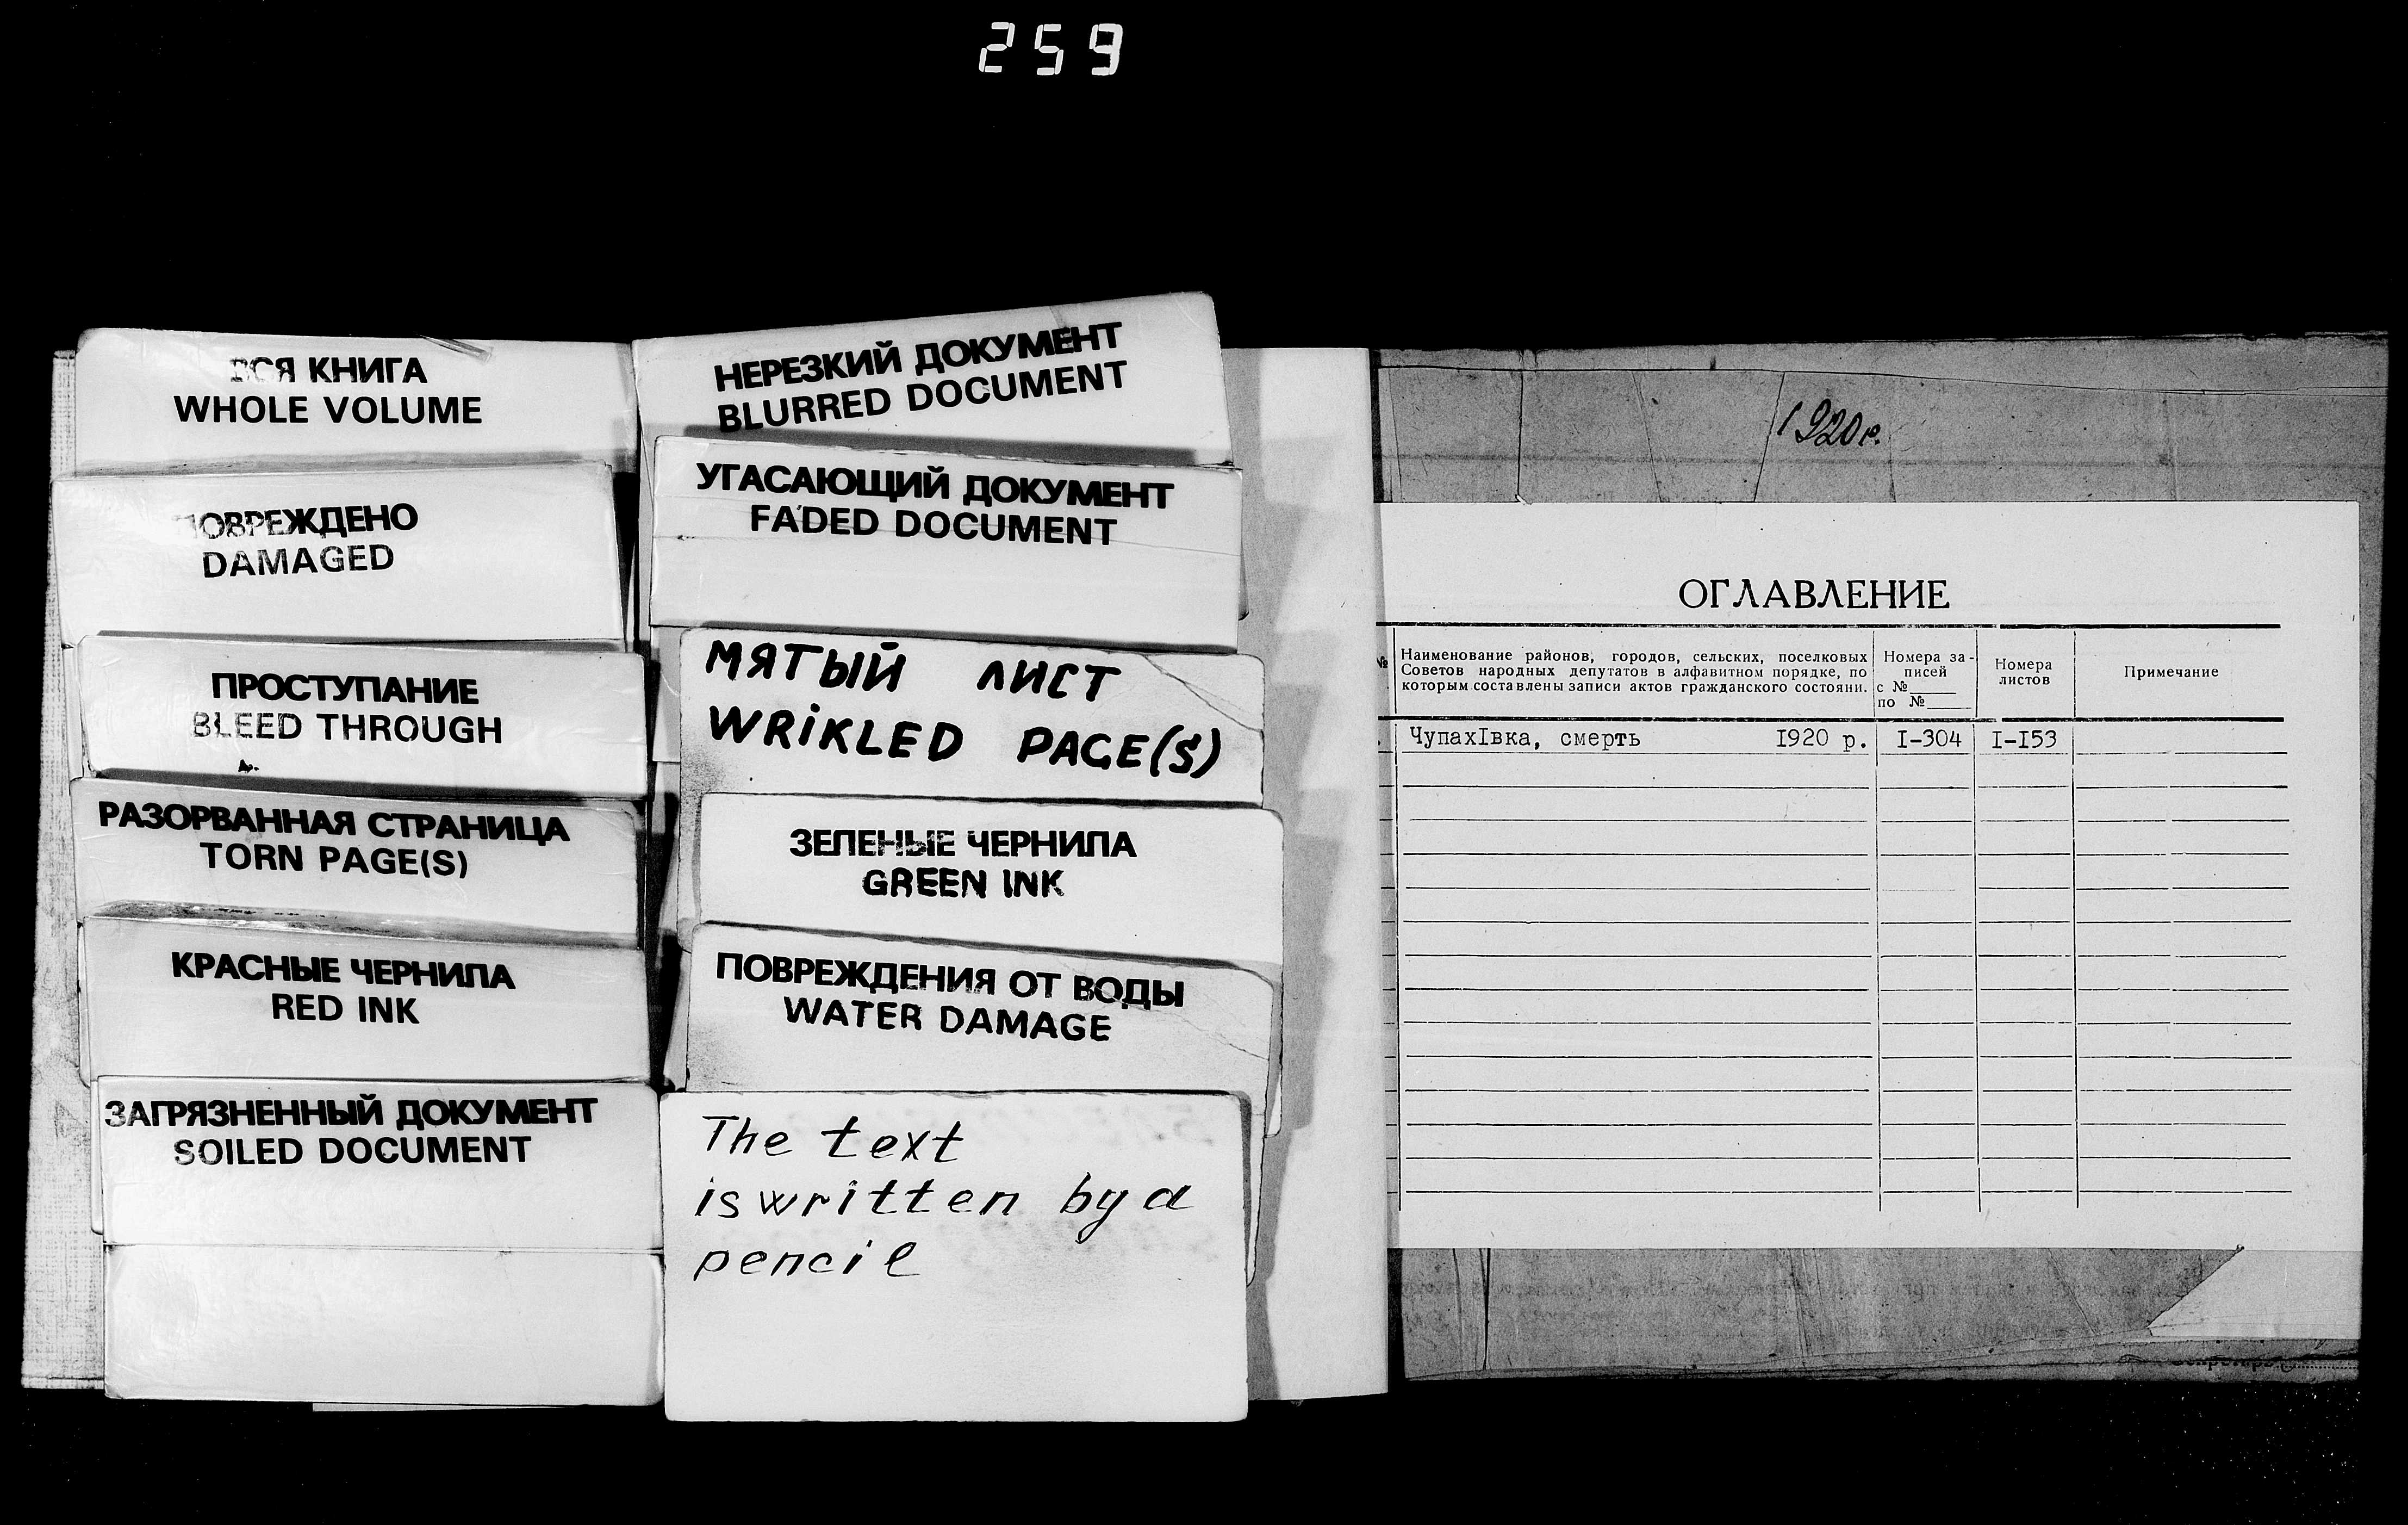 259
ВСЯ КНИГА
WHOLE VOLUME
ПОВРЕЖДЕНО
DAMAGED
ПРОСТУПАНИЕ
BLEED THROUGH
РАЗОРВАННАЯ СТРАНИЦА
TORN PAGE(S)
КРАСНЫЕ ЧЕРНИЛА
RED INK
ЗАГРЯЗНЕННЫЙ ДОКУМЕНТ
SOILED DOCUMENT
НЕРЕЗКИЙ ДОКУМЕНТ
BLURRED DOCUMENT
УГАСАЮЩИЙ ДОКУМЕНТ
FADED DOCUMENT
МЯТЫЙ ЛИСТ
WRiKLED PAGE(S)
ЗЕЛЕНЫЕ ЧЕРНИЛА
GREEN INK
ПОВРЕЖДЕНИЯ ОТ ВОДЫ
WATER DAMAGE
The text
is written by a
pencil
1920 г.
ОГЛАВЛЕНИЕ
№
Наименование районов, городов, сельских, поселковых
Советов народных депутатов в алфавитном порядке, по
которым составлены записи актов гражданского состояни.
Номера за-
писей
с №____
по №____
Номера
листов
Примечание
ЧупахІвка, смерть 1920 р. І-304 І-І53